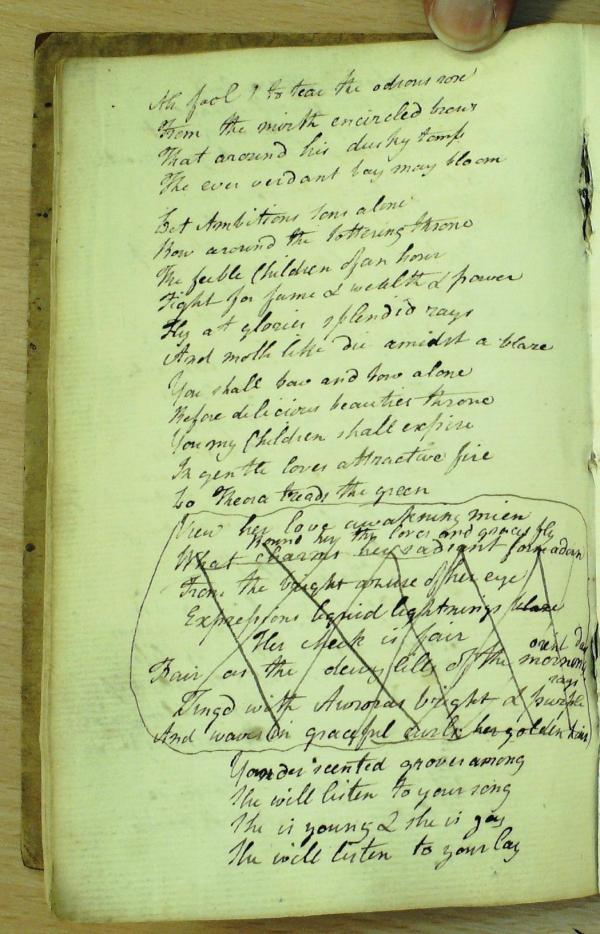 Ah fool! to tear the odious rose
From the mirth encircled brows
That around his dusky tomb
The ever verdant bay may bloom
Let Ambitions sons alone
Bow around the tottering throne
The feeble Children of an hour
Fight for fame & wealth & power
Fly at glories splendid rays
And moth like die amidst a blaze
You shall bow and bow alone
Before delicious beauties throne
You my Children shall expire
In gentle loves attractive fire
Lo Theora treads the green
View her love awakning mien
Round her the loves and graces fly
What charms her radiant form adorn
From the bright azure of her eye
Expressions liquid lightnings blaze
Her cheek is fair
Fair as the dewy lily of the morning
rays
Tingd with Auroras bright & purple
And waves in graceful curls her golden hair
Yonder scented groves among
She will listen to your song
She is young & she is gay
She will listen to your lay